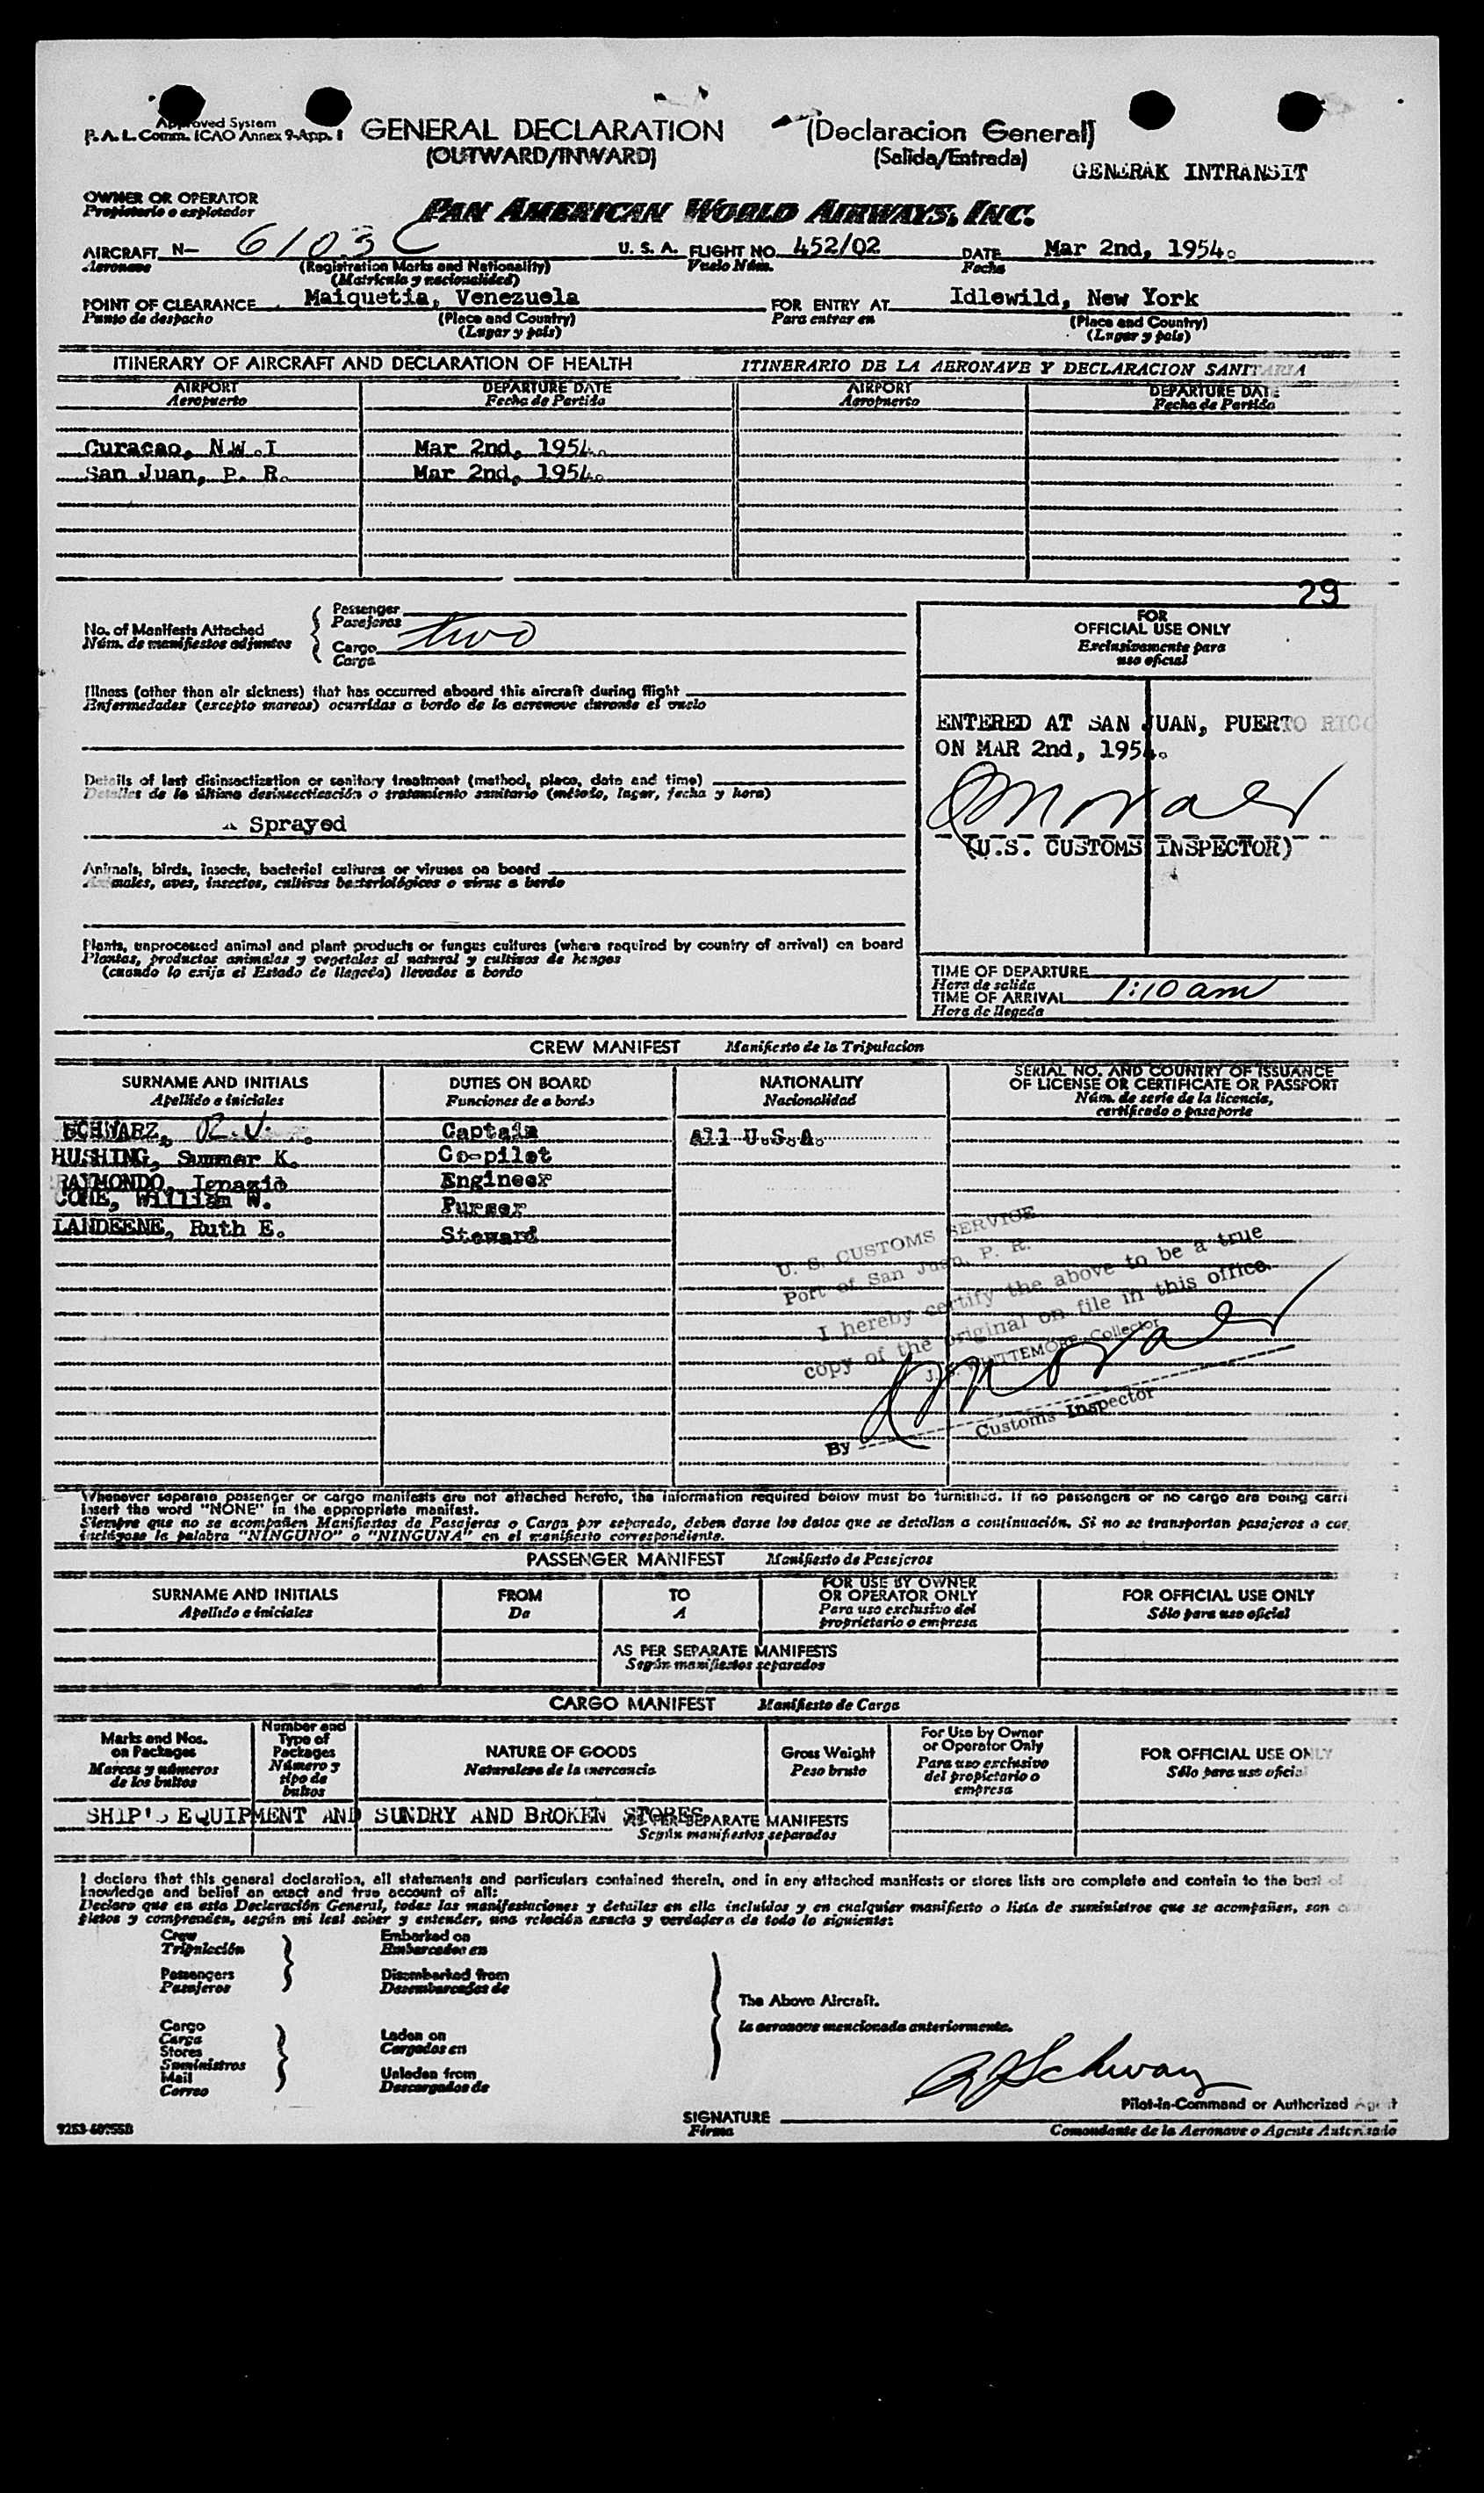 Approved System
P. A. L. Comm. ICAO Annex 9-App. 1
GENERAL DECLARATION (Declaracion General)
(OUTWARD/INWARD) (Salida/Entrada)
GENERAK INTRANSIT
OWNER OR OPERATOR
Propietario o explotador
PAN AMERICAN WORLD AIRWAYS, INC.
AIRCRAFT N- 6103C U. S. A. FLIGHT NO. 452/02 DATE Mar 2nd, 1954.
Aeronave (Registration Marks and Nationality) Vuelo Núm. Fecha
(Matricula y nacionalidad)
POINT OF CLEARANCE Maiquetia, Venezuela FOR ENTRY AT Idlewild, New York
Punto de despacho (Place and Country) Para entrar en (Place and Country)
(Lugar y país) (Lugar y país)
ITINERARY OF AIRCRAFT AND DECLARATION OF HEALTH ITINERARIO DE LA AERONAVE Y DECLARACION SANITARIA
AIRPORT DEPARTURE DATE AIRPORT DEPARTURE DATE
Aeropuerto Fecha de Partida Aeropuerto Fecha de Partida
Curacao, N.W.I Mar 2nd, 1954.
San Juan, P. R. Mar 2nd, 1954.
29
No. of Manifests Attached
Núm. de manifiestos adjuntos
Passenger
Pasajeros
Cargo two
Carga
FOR
OFFICIAL USE ONLY
Exclusivamente para
uso oficial
Illness (other than air sickness) that has occurred aboard this aircraft during flight
Enfermedades (excepto mareos) ocurridas a bordo de la aeronave durante el vuelo
ENTERED AT SAN JUAN, PUERTO RICO
ON MAR 2nd, 1954.
(U.S. CUSTOMS INSPECTOR)
Details of last disinsectization or sanitary treatment (method, place, date and time)
Detalles de la última desinsectización o tratamiento sanitario (método, lugar, fecha y hora)
Sprayed
Animals, birds, insects, bacterial cultures or viruses on board
Animales, aves, insectos, cultivos bacteriológicos o virus a bordo
Plants, unprocessed animal and plant products or fungus cultures (where required by country of arrival) on board
Plantas, productos animales y vegetales al natural y cultivos de hongos
(cuando lo exija el Estado de llegada) llevados a bordo
TIME OF DEPARTURE
Hora de salida
TIME OF ARRIVAL 1:10 am
Hora de llegada
CREW MANIFEST Manifiesto de la Tripulacion
SURNAME AND INITIALS DUTIES ON BOARD NATIONALITY SERIAL NO. AND COUNTRY OF ISSUANCE
OF LICENSE OR CERTIFICATE OR PASSPORT
Apellido e iniciales Funciones de a bordo Nacionalidad Núm. de serie de la licencia,
certificado o pasaporte
SCHWARZ, R.J. Captain All U.S.A.
HUSHING, Summer K. Co-pilot
RAIMONDO, Ignazio Engineer
CONE, William W. Purser
LANDEENE, Ruth E. Steward
U. S. CUSTOMS SERVICE
Port of San Juan, P. R.
I hereby certify the above to be a true
copy of the original on file in this office.
WHITTEMORE, Collector
By
Customs Inspector
Whenever separate passenger or cargo manifests are not attached hereto, the information required below must be furnished. If no passengers or no cargo are being carri
insert the word "NONE" in the appropriate manifest.
Siempre que no se acompañen Manifiestos de Pasajeros o Carga por separado, deben darse los datos que se detallan a continuación. Si no se transportan pasajeros o car
inclúyase la palabra "NINGUNO" o "NINGUNA" en el manifiesto correspondiente.
PASSENGER MANIFEST Manifiesto de Pasajeros
SURNAME AND INITIALS FROM TO FOR USE BY OWNER
OR OPERATOR ONLY FOR OFFICIAL USE ONLY
Apellido e iniciales De A Para uso exclusivo del
propietario o empresa Sólo para uso oficial
AS PER SEPARATE MANIFESTS
Según manifiestos separados
CARGO MANIFEST Manifiesto de Carga
Marks and Nos.
on Packages
Marcas y números
de los bultos
Number and
Type of
Packages
Número y
tipo de
bultos
NATURE OF GOODS
Naturaleza de la mercancia
Gross Weight
Peso bruto
For Use by Owner
or Operator Only
Para uso exclusivo
del propietario o
empresa
FOR OFFICIAL USE ONLY
Sólo para uso oficial
SHIP'S EQUIPMENT AND SUNDRY AND BROKEN STORES
AS PER SEPARATE MANIFESTS
Según manifiestos separados
I declare that this general declaration, all statements and particulars contained therein, and in any attached manifests or stores lists are complete and contain to the best of
knowledge and belief an exact and true account of all:
Declaro que en esta Declaración General, todas las manifestaciones y detalles en ella incluídos y en cualquier manifiesto o lista de suministros que se acompañen, son
pletos y comprenden, según mi leal saber y entender, una relación exacta y verdadera de todo lo siguiente:
Crew
Tripulación
Passengers
Pasajeros
Embarked on
Embarcados en
Disembarked from
Desembarcados de
Cargo
Carga
Stores
Suministros
Mail
Correo
Laden on
Cargados en
Unladen from
Descargados de
The Above Aircraft.
la aeronave mencionada anteriormente.
RJSchwarz
SIGNATURE
Firma
Pilot-in-Command or Authorized Agent
Comandante de la Aeronave o Agente Autorizado